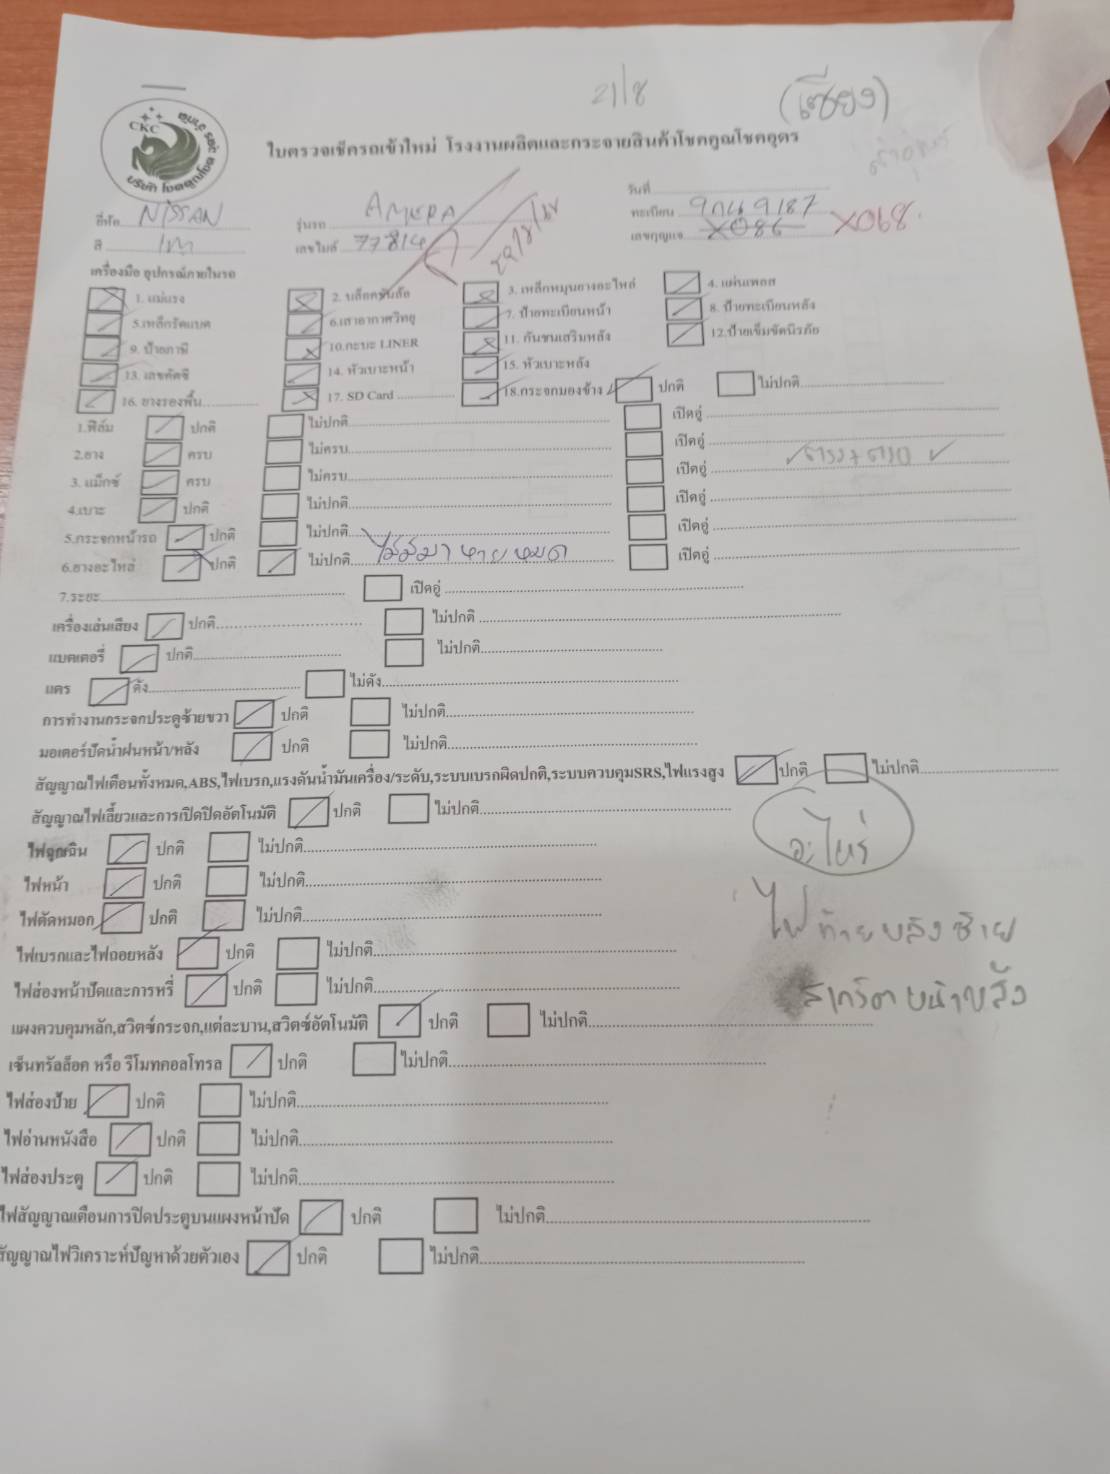 21/8
(เซียง)
CKC
ใบตรวจเช็ครถเข้าใหม่ โรงงานผลิตและกระจายสินค้าโชคคูณโชคอุดร
วันที่
ยี่ห้อ NISSAN รุ่นรถ ทะเบียน 9187
สี เทา เลขไมล์ เลขกุญแจ X086 X068
เครื่องมือ อุปกรณ์ภายในรถ
1. แม่แรง 2. บล็อคขันล้อ 3. เหล็กหมุนยางอะไหล่ 4. แผ่นเพลท
5.เหล็กรัดแบต 6.เสาอากาศวิทยุ 7. ป้ายทะเบียนหน้า 8. ป้ายทะเบียนหลัง
9. ป้ายภาษี 10.กะบะ LINER 11. กันชนเสริมหลัง 12.ป้ายเข็มขัดนิรภัย
13. เลขคัดซี 14. หัวเบาะหน้า 15. หัวเบาะหลัง
16. ยางรองพื้น 17. SD Card 18.กระจกมองข้าง ปกติ ไม่ปกติ
1.ฟิล์ม ปกติ ไม่ปกติ เปิดอู่
2.ยาง ครบ ไม่ครบ เปิดอู่
3. แม็กซ์ ครบ ไม่ครบ เปิดอู่
4.เบาะ ปกติ ไม่ปกติ เปิดอู่
5.กระจกหน้ารถ ปกติ ไม่ปกติ เปิดอู่
6.ยางอะไหล่ ปกติ ไม่ปกติ ไม่มีมา หายหมด เปิดอู่
7.ระยะ เปิดอู่
เครื่องเล่นเสียง ปกติ ไม่ปกติ
แบตเตอรี่ ปกติ ไม่ปกติ
แตร ดัง ไม่ดัง
การทำงานกระจกประตูซ้ายขวา ปกติ ไม่ปกติ
มอเตอร์ปัดน้ำฝนหน้า/หลัง ปกติ ไม่ปกติ
สัญญาณไฟเตือนทั้งหมด,ABS,ไฟเบรก,แรงดันน้ำมันเครื่อง/ระดับ,ระบบเบรกผิดปกติ,ระบบควบคุมSRS,ไฟแรงสูง ปกติ ไม่ปกติ
สัญญาณไฟเลี้ยวและการเปิดปิดอัตโนมัติ ปกติ ไม่ปกติ
ไฟฉุกเฉิน ปกติ ไม่ปกติ
อะไหร่
ไฟหน้า ปกติ ไม่ปกติ
ไฟตัดหมอก ปกติ ไม่ปกติ
ไฟท้ายหลังซ้าย
ไฟเบรกและไฟถอยหลัง ปกติ ไม่ปกติ
ไฟส่องหน้าปัดและการหรี่ ปกติ ไม่ปกติ
หน้าหลัง
แผงควบคุมหลัก,สวิตซ์กระจก,แต่ละบาน,สวิตซ์อัตโนมัติ ปกติ ไม่ปกติ
เซ็นทรัลล็อค หรือ รีโมทคอลโทรล ปกติ ไม่ปกติ
ไฟส่องป้าย ปกติ ไม่ปกติ
ไฟอ่านหนังสือ ปกติ ไม่ปกติ
ไฟส่องประตู ปกติ ไม่ปกติ
ไฟสัญญาณเตือนการปิดประตูบนแผงหน้าปัด ปกติ ไม่ปกติ
สัญญาณไฟวิเคราะห์ปัญหาด้วยตัวเอง ปกติ ไม่ปกติ